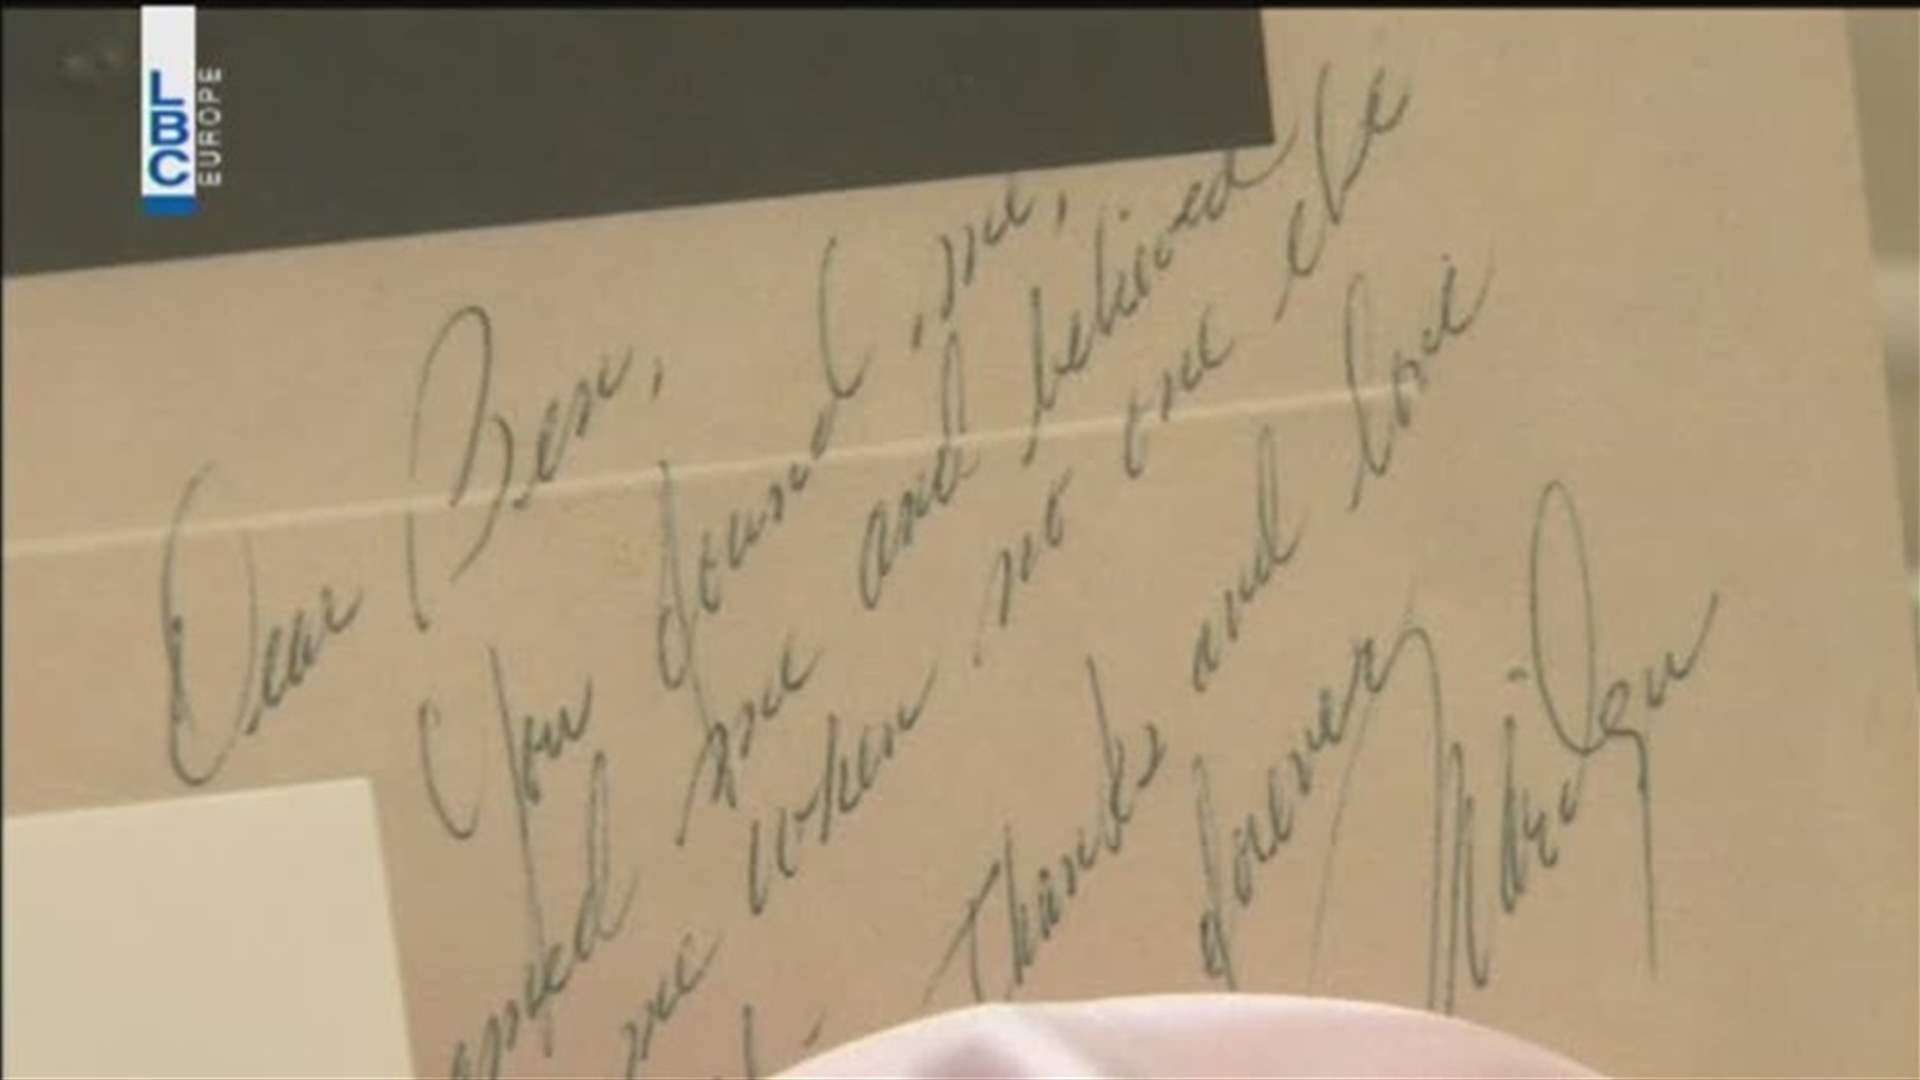 LBC
EUROPE
Dear Ben,
You found me,
named me and believed
me when no one else
Thanks and love
forever
Marilyn